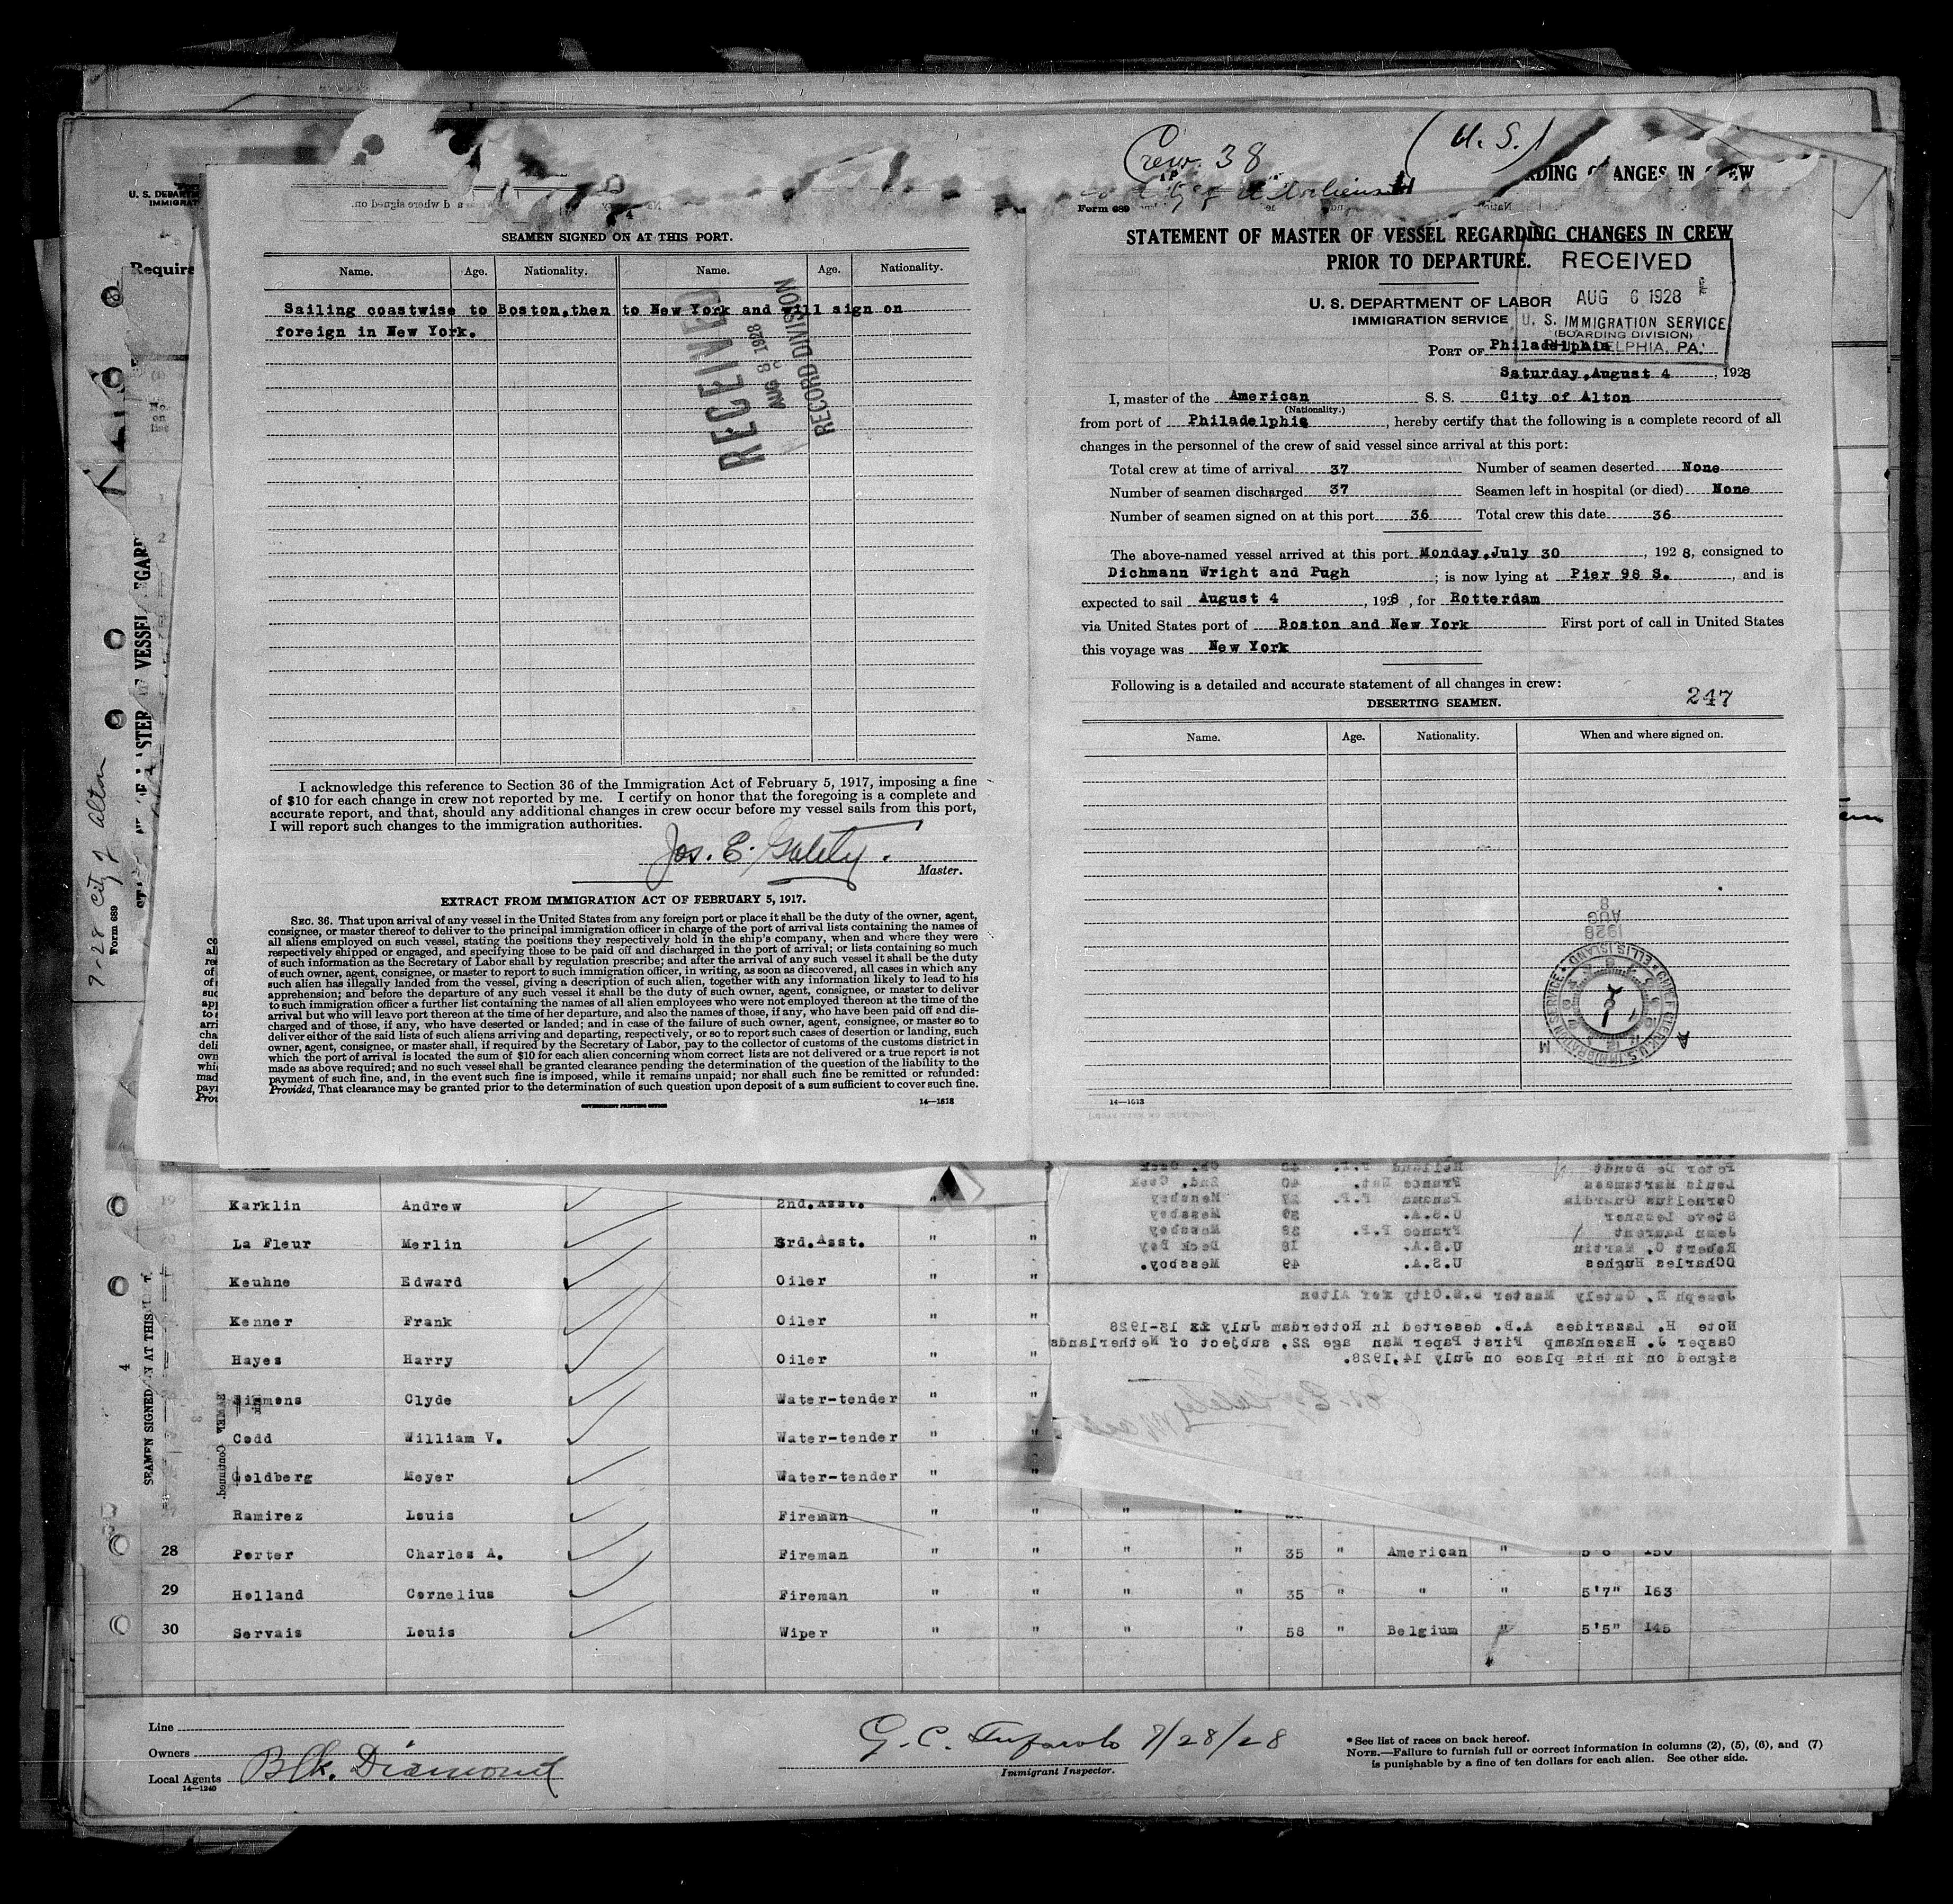 Crew 38
(U. S.)
RDING CHANGES IN CREW
U. S. DEPARTM
IMMIGRAT
Require
SEAMEN SIGNED ON AT THIS PORT.
Name. Age. Nationality. Name. Age. Nationality.
Sailing coastwise to Boston,then to New York and will sign on
foreign in New York.
RECEIVED
AUG 8 1928
RECORD DIVISION
I acknowledge this reference to Section 36 of the Immigration Act of February 5, 1917, imposing a fine
of $10 for each change in crew not reported by me. I certify on honor that the foregoing is a complete and
accurate report, and that, should any additional changes in crew occur before my vessel sails from this port,
I will report such changes to the immigration authorities.
Jos. E. Gately.
Master.
EXTRACT FROM IMMIGRATION ACT OF FEBRUARY 5, 1917.
SEC. 36. That upon arrival of any vessel in the United States from any foreign port or place it shall be the duty of the owner, agent,
consignee, or master thereof to deliver to the principal immigration officer in charge of the port of arrival lists containing the names of
all aliens employed on such vessel, stating the positions they respectively hold in the ship's company, when and where they were
respectively shipped or engaged, and specifying those to be paid off and discharged in the port of arrival; or lists containing so much
of such information as the Secretary of Labor shall by regulation prescribe; and after the arrival of any such vessel it shall be the duty
of such owner, agent, consignee, or master to report to such immigration officer, in writing, as soon as discovered, all cases in which any
such alien has illegally landed from the vessel, giving a description of such alien, together with any information likely to lead to his
apprehension; and before the departure of any such vessel it shall be the duty of such owner, agent, consignee, or master to deliver
to such immigration officer a further list containing the names of all alien employees who were not employed thereon at the time of the
arrival but who will leave port thereon at the time of her departure, and also the names of those, if any, who have been paid off and dis-
charged and of those, if any, who have deserted or landed; and in case of the failure of such owner, agent, consignee, or master so to
deliver either of the said lists of such aliens arriving and departing, respectively, or so to report such cases of desertion or landing, such
owner, agent, consignee, or master shall, if required by the Secretary of Labor, pay to the collector of customs of the customs district in
which the port of arrival is located the sum of $10 for each alien concerning whom correct lists are not delivered or a true report is not
made as above required; and no such vessel shall be granted clearance pending the determination of the question of the liability to the
payment of such fine, and, in the event such fine is imposed, while it remains unpaid; nor shall such fine be remitted or refunded:
Provided, That clearance may be granted prior to the determination of such question upon deposit of a sum sufficient to cover such fine.
GOVERNMENT PRINTING OFFICE 14—1613
Form 689
STATEMENT OF MASTER OF VESSEL REGARDING CHANGES IN CREW
PRIOR TO DEPARTURE.
RECEIVED
AUG 6 1928
U. S. IMMIGRATION SERVICE
(BOARDING DIVISION)
PHILADELPHIA, PA.
U. S. DEPARTMENT OF LABOR
IMMIGRATION SERVICE
PORT OF Philadelphia
Saturday,August 4, 1928
I, master of the American S. S. City of Alton
(Nationality.)
from port of Philadelphia, hereby certify that the following is a complete record of all
changes in the personnel of the crew of said vessel since arrival at this port:
Total crew at time of arrival 37 Number of seamen deserted None
Number of seamen discharged 37 Seamen left in hospital (or died) None
Number of seamen signed on at this port 36 Total crew this date 36
The above-named vessel arrived at this port Monday,July 30, 1928, consigned to
Dichmann Wright and Pugh; is now lying at Pier 98 S., and is
expected to sail August 4, 1928, for Rotterdam
via United States port of Boston and New York First port of call in United States
this voyage was New York
Following is a detailed and accurate statement of all changes in crew:
247
DESERTING SEAMEN.
Name. Age. Nationality. When and where signed on.
AUG 8 1928
CHIEF CLERK, U.S. IMMIGRATION SERVICE ELLIS ISLAND
14—1613
7-28 City of Alton
Form 689
SEAMEN SIGNED ON AT THIS
4
Karklin Andrew 2nd.Asst. "
La Fleur Merlin 3rd.Asst. " "
Keuhne Edward Oiler " "
Kenner Frank Oiler " "
Hayes Harry Oiler " "
Simmons Clyde Water-tender " "
Codd William V. Water-tender " "
Goldberg Meyer Water-tender " "
Ramirez Louis Fireman " " " "
28 Porter Charles A. Fireman " " " " 35 " American "
29 Holland Cornelius Fireman " " " " 35 " " " 5'7" 163
30 Servais Louis Wiper " " " " 58 " Belgium " 5'5" 145
Peter De Bondt Holland F.P.
Louis Martsmass France Nat. 40 2nd. Cook
Cornelius Guardia Panama F.P. 27 Messboy
Steve Lessner U.S.A. 39 Messboy
Jean Laurent France F.P. 38 Messboy
Robert C. Martin U.S.A. 18 Deck Boy
DCharles Hughes U.S.A. 49 Messboy.
Joseph E. Gately Master S.S.City xof Alton
Note H. Lazarides A.B. deserted in Rotterdam July 13-1928
Casper J. Hazenkamp First Paper Man age 22, subject of Netherlands
signed on in his place on July 14,1928.
Line
Owners
Local Agents Blk. Diamond
14—1240
7/28/28
Immigrant Inspector.
*See list of races on back hereof.
NOTE.—Failure to furnish full or correct information in columns (2), (5), (6), and (7)
is punishable by a fine of ten dollars for each alien. See other side.